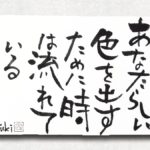 あなたらしい
色を出す
ために時
は流れて
いる
uki